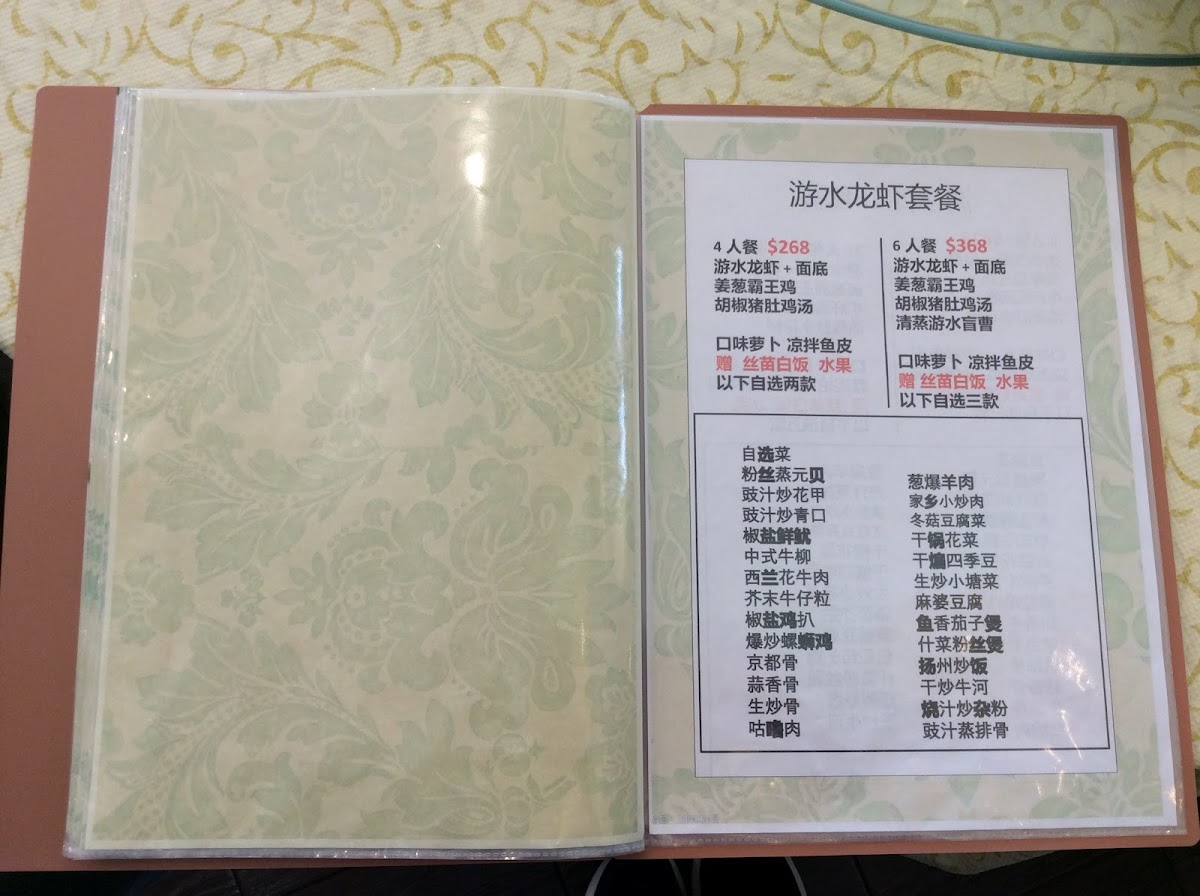 游水龙虾套餐
4 人餐 $268
游水龙虾 + 面底
姜葱霸王鸡
胡椒猪肚鸡汤
口味萝卜 凉拌鱼皮
赠 丝苗白饭 水果
以下自选两款
6 人餐 $368
游水龙虾 + 面底
姜葱霸王鸡
胡椒猪肚鸡汤
清蒸游水盲曹
口味萝卜 凉拌鱼皮
赠 丝苗白饭 水果
以下自选三款
自选菜
粉丝蒸元贝
豉汁炒花甲
豉汁炒青口
椒盐鲜鱿
中式牛柳
西兰花牛肉
芥末牛仔粒
椒盐鸡扒
爆炒螺蛳鸡
京都骨
蒜香骨
生炒骨
咕噜肉
葱爆羊肉
家乡小炒肉
冬菇豆腐菜
干锅花菜
干煸四季豆
生炒小塘菜
麻婆豆腐
鱼香茄子煲
什菜粉丝煲
扬州炒饭
干炒牛河
烧汁炒杂粉
豉汁蒸排骨